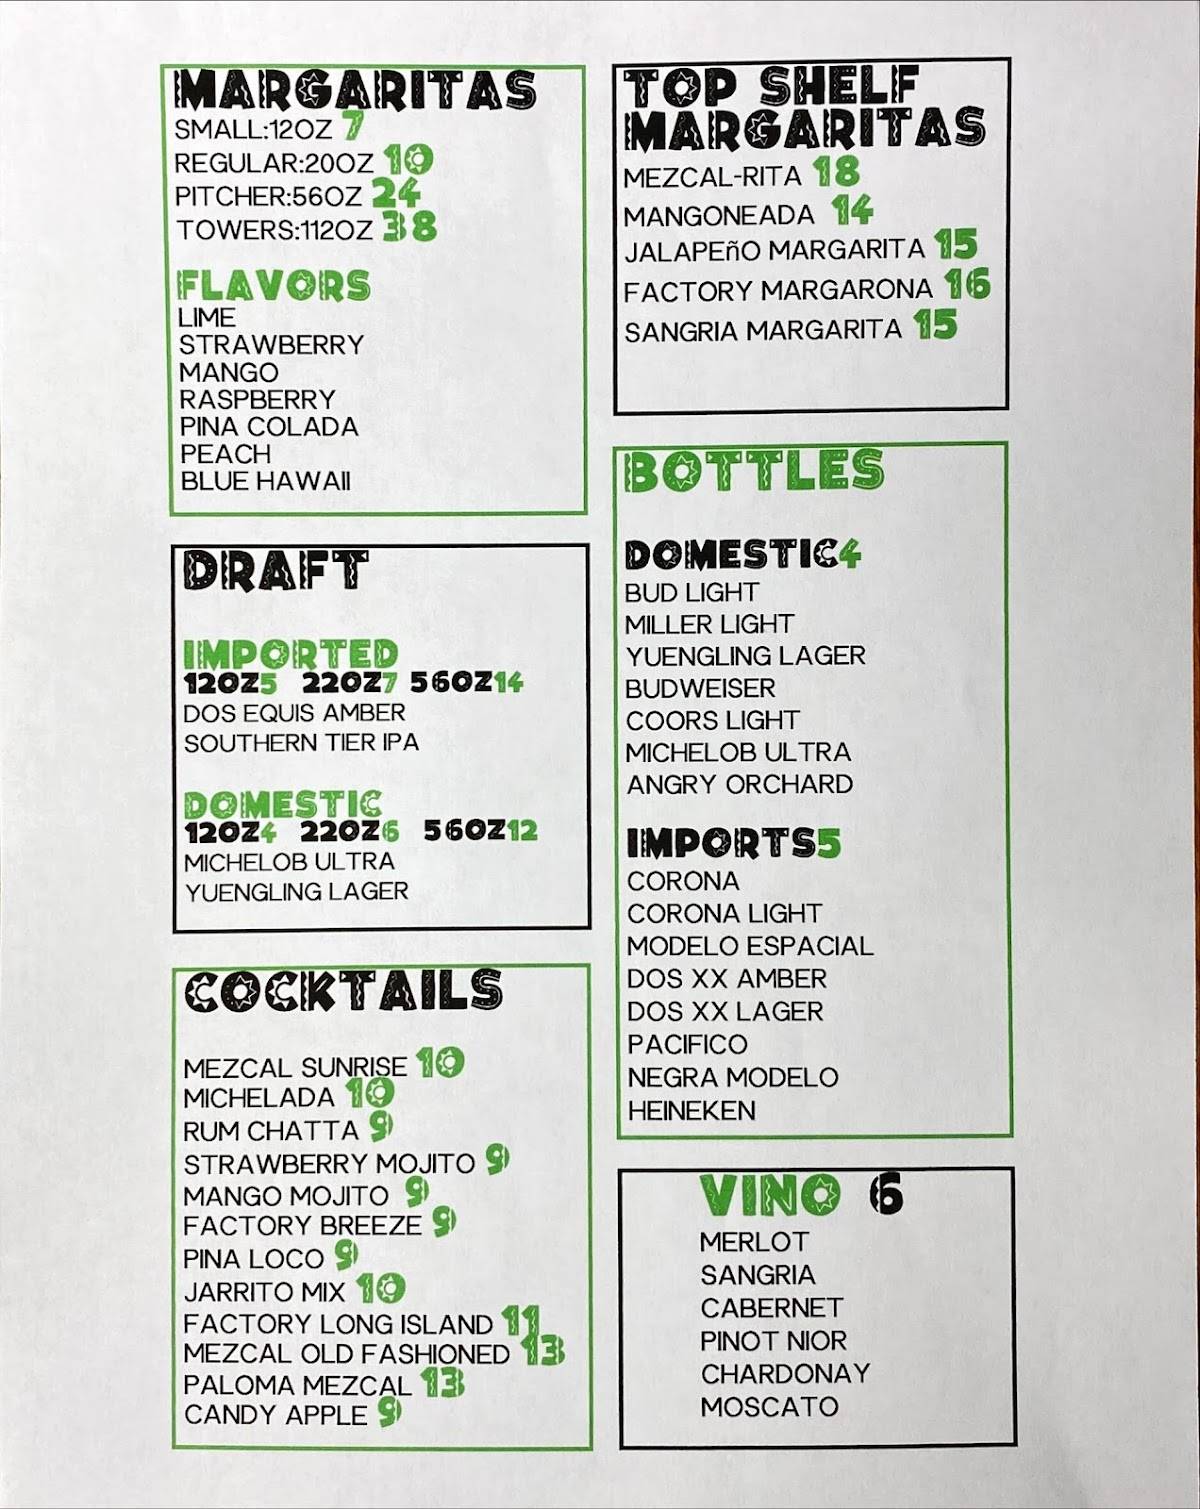 MARGARITAS
SMALL:12OZ 7
REGULAR:20OZ 10
PITCHER:56OZ 24
TOWERS:112OZ 38
FLAVORS
LIME
STRAWBERRY
MANGO
RASPBERRY
PINA COLADA
PEACH
BLUE HAWAII
TOP SHELF
MARGARITAS
MEZCAL-RITA 18
MANGONEADA 14
JALAPEñO MARGARITA 15
FACTORY MARGARONA 16
SANGRIA MARGARITA 15
DRAFT
IMPORTED
12OZ5 22OZ7 56OZ14
DOS EQUIS AMBER
SOUTHERN TIER IPA
DOMESTIC
12OZ4 22OZ6 56OZ12
MICHELOB ULTRA
YUENGLING LAGER
BOTTLES
DOMESTIC4
BUD LIGHT
MILLER LIGHT
YUENGLING LAGER
BUDWEISER
COORS LIGHT
MICHELOB ULTRA
ANGRY ORCHARD
IMPORTS5
CORONA
CORONA LIGHT
MODELO ESPACIAL
DOS XX AMBER
DOS XX LAGER
PACIFICO
NEGRA MODELO
HEINEKEN
COCKTAILS
MEZCAL SUNRISE 10
MICHELADA 10
RUM CHATTA 9
STRAWBERRY MOJITO 9
MANGO MOJITO 9
FACTORY BREEZE 9
PINA LOCO 9
JARRITO MIX 10
FACTORY LONG ISLAND 11
MEZCAL OLD FASHIONED 13
PALOMA MEZCAL 13
CANDY APPLE 9
VINO 6
MERLOT
SANGRIA
CABERNET
PINOT NIOR
CHARDONAY
MOSCATO